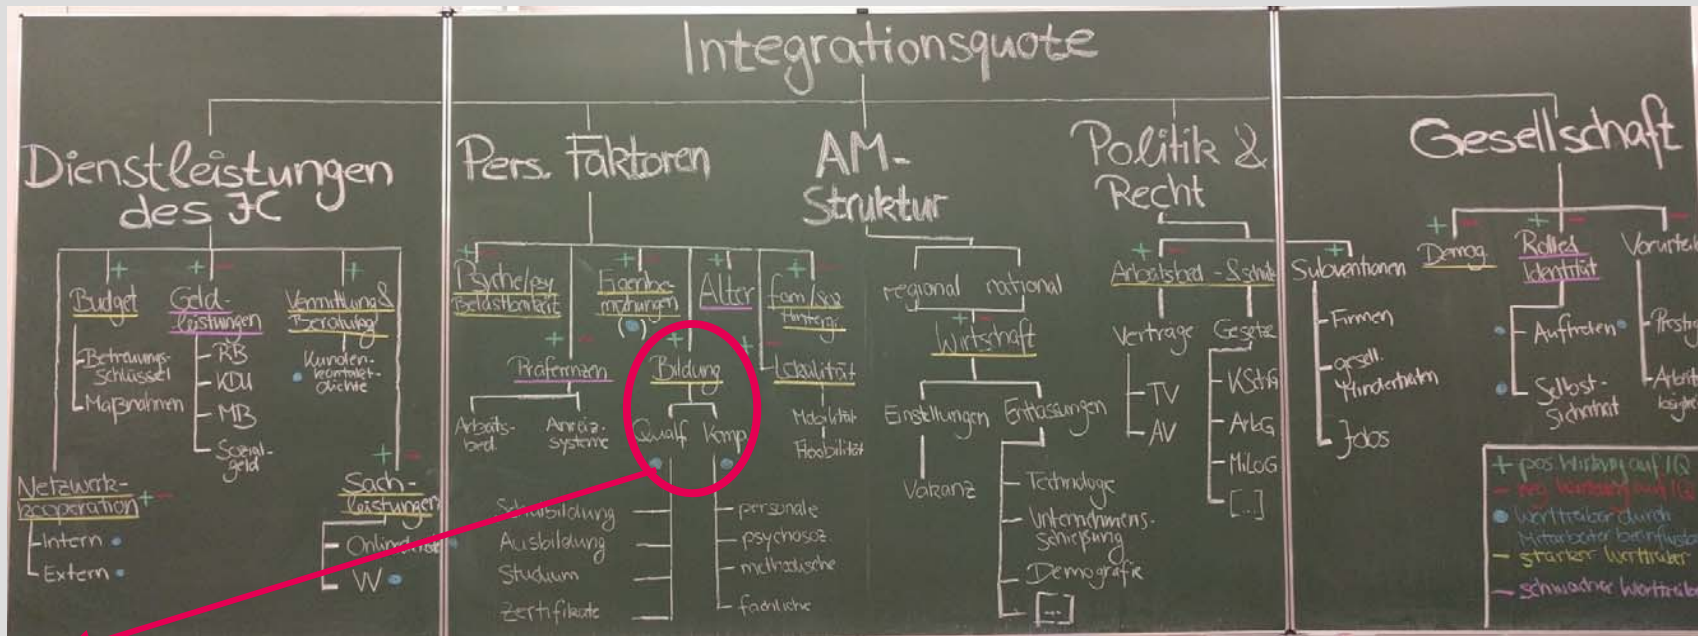 Integrationsquote
Dienstleistungen
des JC
+
Budget
Betreuungs-
schlüssel
Maßnahmen
+ -
Geld-
leistungen
RB
KDU
MB
Sozial-
geld
+
Vermittlung &
Beratung
Kunden-
kontakt-
dichte
Netzwerk- + -
kooperation
Intern
Extern
+ -
Sach-
leistungen
VV
Pers. Faktoren
+ -
Psyche/psy
Belastbarkeit
+ -
Präferenzen
Arbeits-
bed.
Anreiz-
systeme
+ -
( )
+ -
Bildung
Qualf Komp
Schulbildung
Ausbildung
Studium
Zertifikate
personale
psychosoz.
methodische
fachliche
+
Alter
+ -
fam/soz
Lokalität
Mobilität
Flexibilität
AM-
Struktur
regional national
+ -
Wirtschaft
Einstellungen
Vakanz
Entlassungen
Technologie
Unternehmens-
schließung
Demografie
[...]
Politik &
Recht
+ -
Arbeitsbed - & schutz
Verträge
TV
AV
Gesetze
KSchG
ArbG
MiLoG
[...]
+
Subventionen
Firmen
gesell.
Minderheiten
Jobs
Gesellschaft
+ -
Demog.
+ -
Identität
Auftreten
Selbst-
sicherheit
-
+ pos. Wirkung auf IQ
- neg. Wirkung auf IQ
Werttreiber durch
starker Werttreiber
schwacher Werttreiber